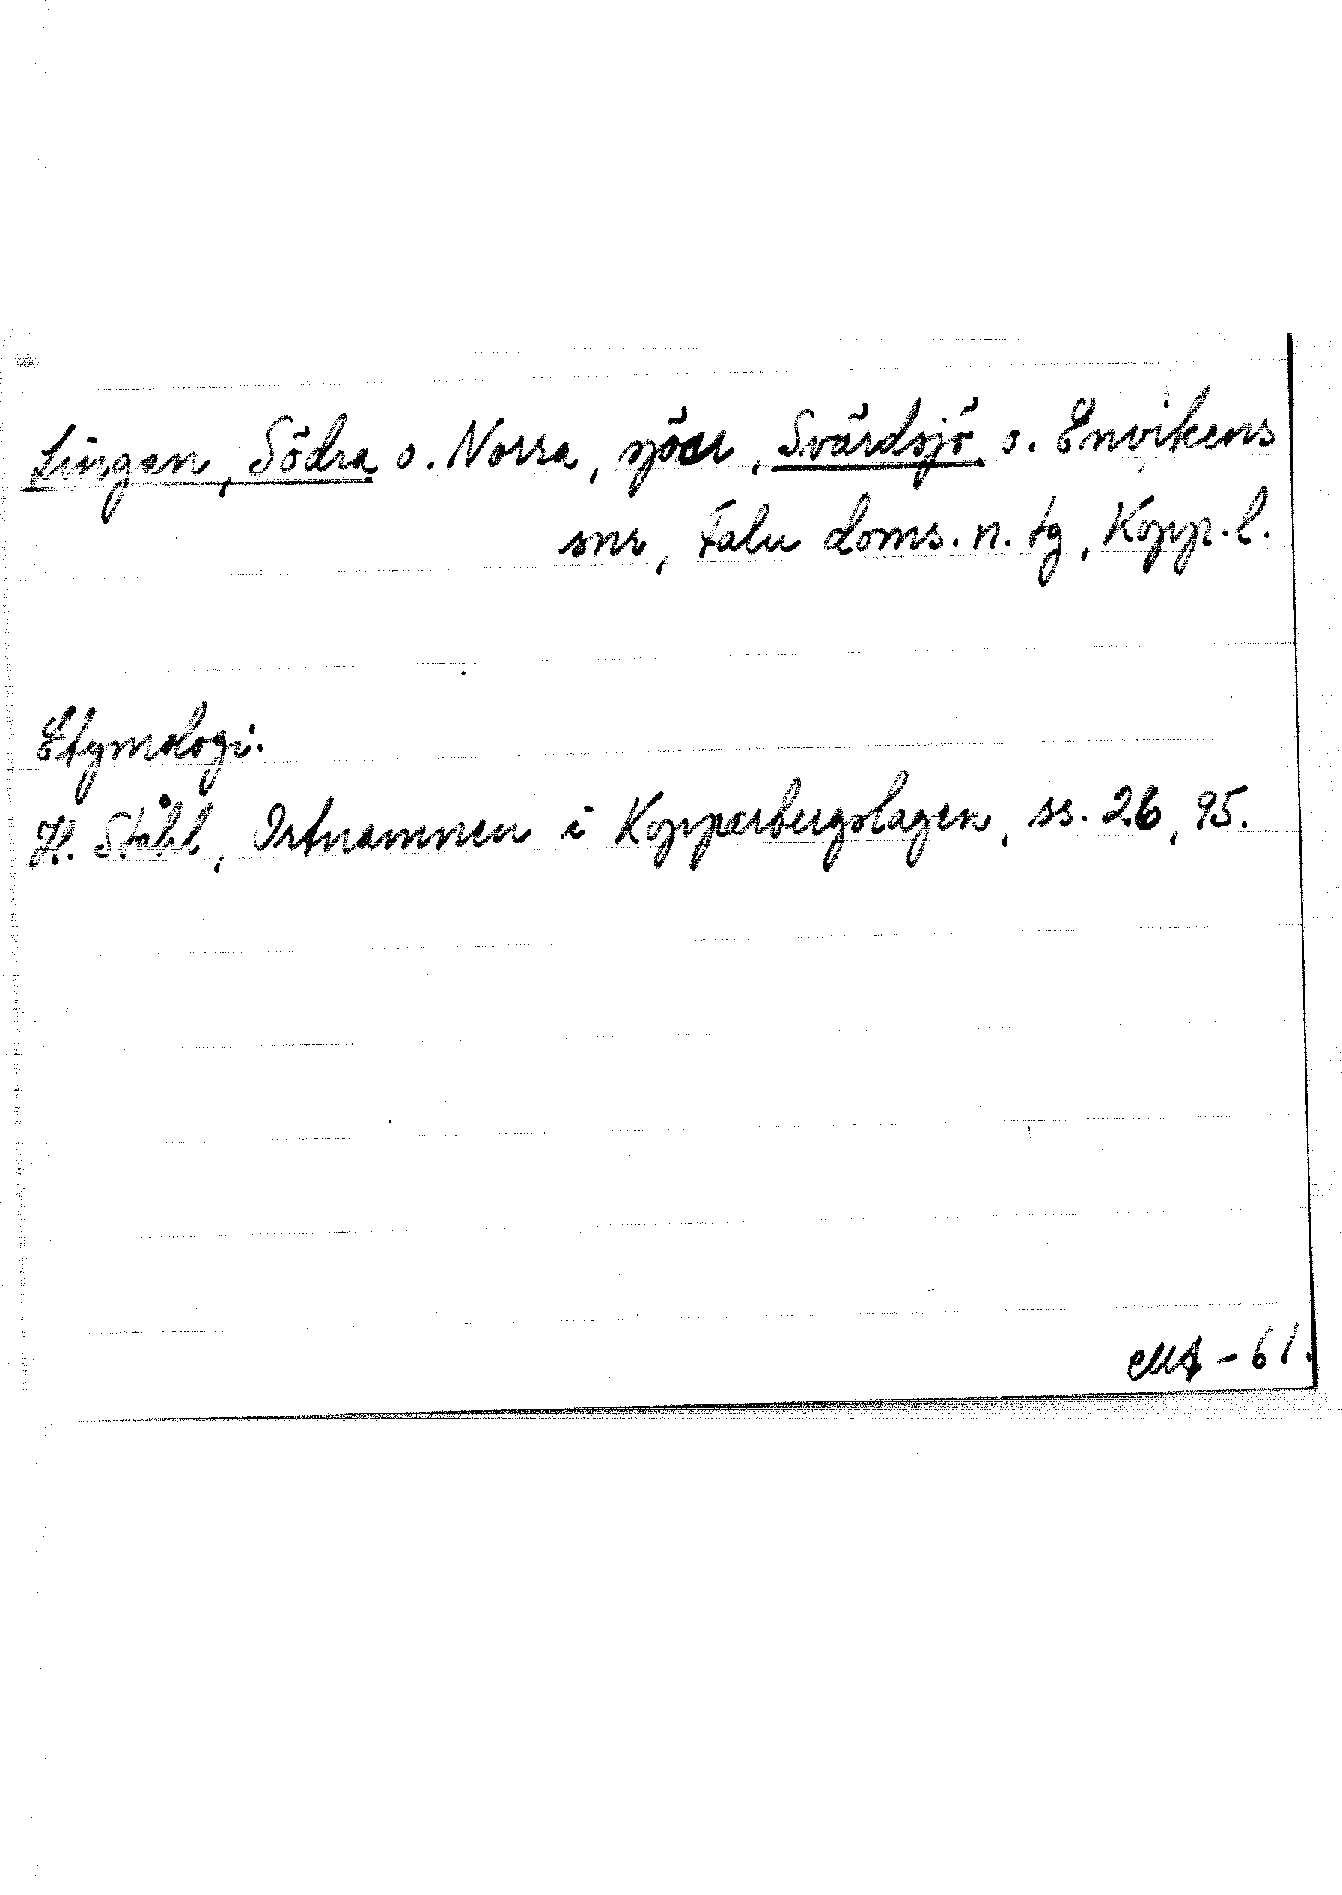 Lingan, Södra o. Norra, sjöar, Svärdsjö o. Envikens
snr, Falu doms. n. tg, Kopp. l.
Etymologi.
H. Ståhl, Ortnamnen i Kopparbergslagen, ss. 26, 95.
-61.